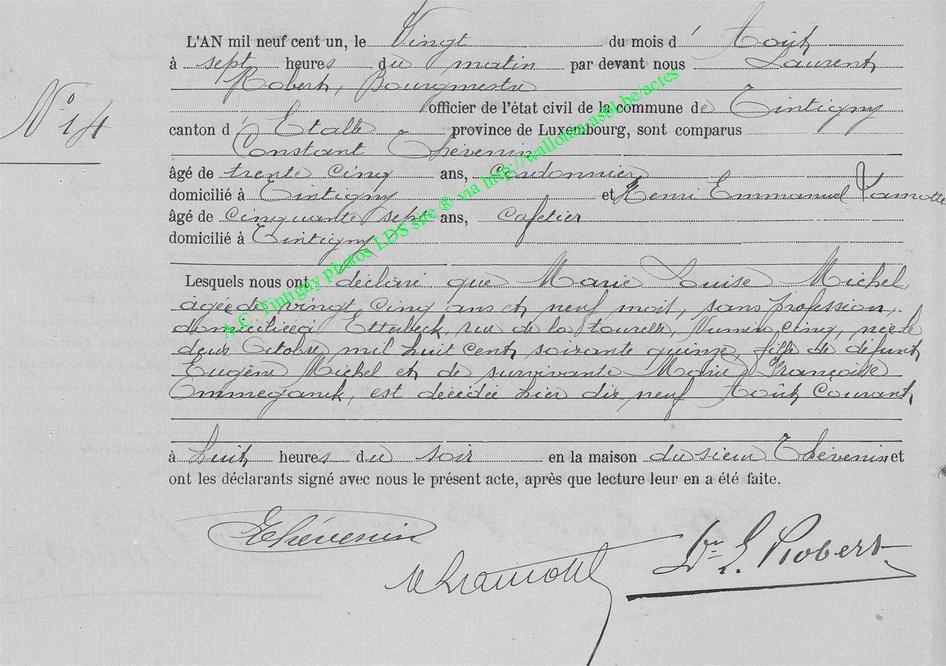 L'AN mil neuf cent un, le Vingt du mois d' Août
à sept heures du matin par devant nous Laurent
Robert, Bourgmestre
officier de l'état civil de la commune de Tintigny
N° 14
canton d' Etalle province de Luxembourg, sont comparus
Constant Thévenin
âgé de trente cinq ans, Cordonnier
domicilié à Tintigny et Henri Emmanuel
âgé de Cinquante sept ans, Cafetier
domicilié à Tintigny
Lesquels nous ont déclaré que Marie Louise Michel
âgée de vingt cinq ans et neuf mois, sans profession,
domiciliée à Etterbeck, rue de la tourelle, numéro cinq, née le
deux Octobre mil huit cent soixante quinze, fille de défunt
Eugène Michel et de survivante Marie Françoise
Ommeganck, est décédée hier dix neuf Août Courant,
à huit heures du soir en la maison du sieur Thévenin et
ont les déclarants signé avec nous le présent acte, après que lecture leur en a été faite.
A.C. Tintigny photos LDS site ® via http://wallonia-asbl.be/actes
Thévenin
Dr L. Robert